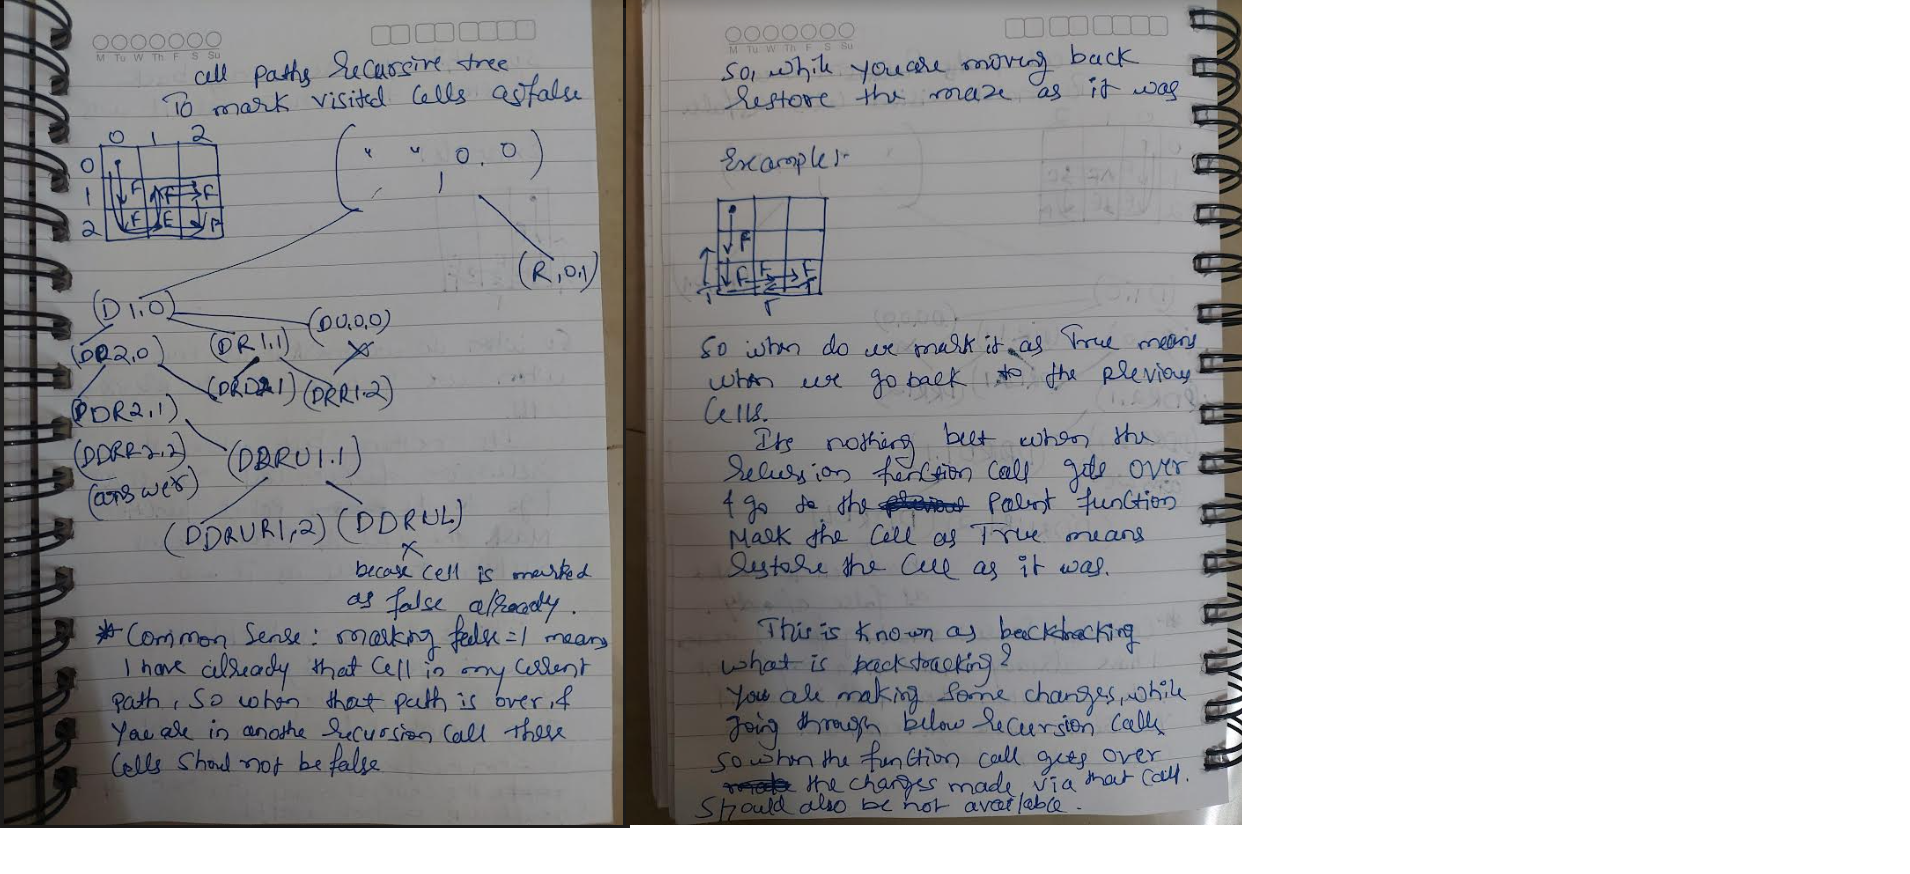 M Tu W Th F S Su
call paths Recursive tree
To mark visited cells as false
0 1 2
0
1 F F F
2 F F F
(" " 0,0)
(R,0,1)
(D1,0)
(DU,0,0)
(DD2,0) (DR1,1)
(DRD2,1) (DRR1,2)
(DDR2,1)
(DDRR2,2) (DDRU1,1)
(answer)
(DDRUR1,2) (DDRUL)
because cell is marked
as false already.
* Common Sense: marking false=1 means
I have already that cell in my current
path, So when that path is over, if
You are in anothe recursion call these
Cells Shoul not be false
M Tu W Th F S Su
So, while you are moving back
Restore the maze as it was
Example:-
F
F F F
T T
So when do we mark it as True means
when we go back to the previous
Cells.
Its nothing but when the
Recursion function call gets over
& go to the Parent function
Mark the Cell as True means
Restore the Cell as it was.
This is Known as backtracking
what is backtracking?
You are making some changes, while
going through below recursion calls
So when the function call gets over
the changes made via that call.
Should also be not available.